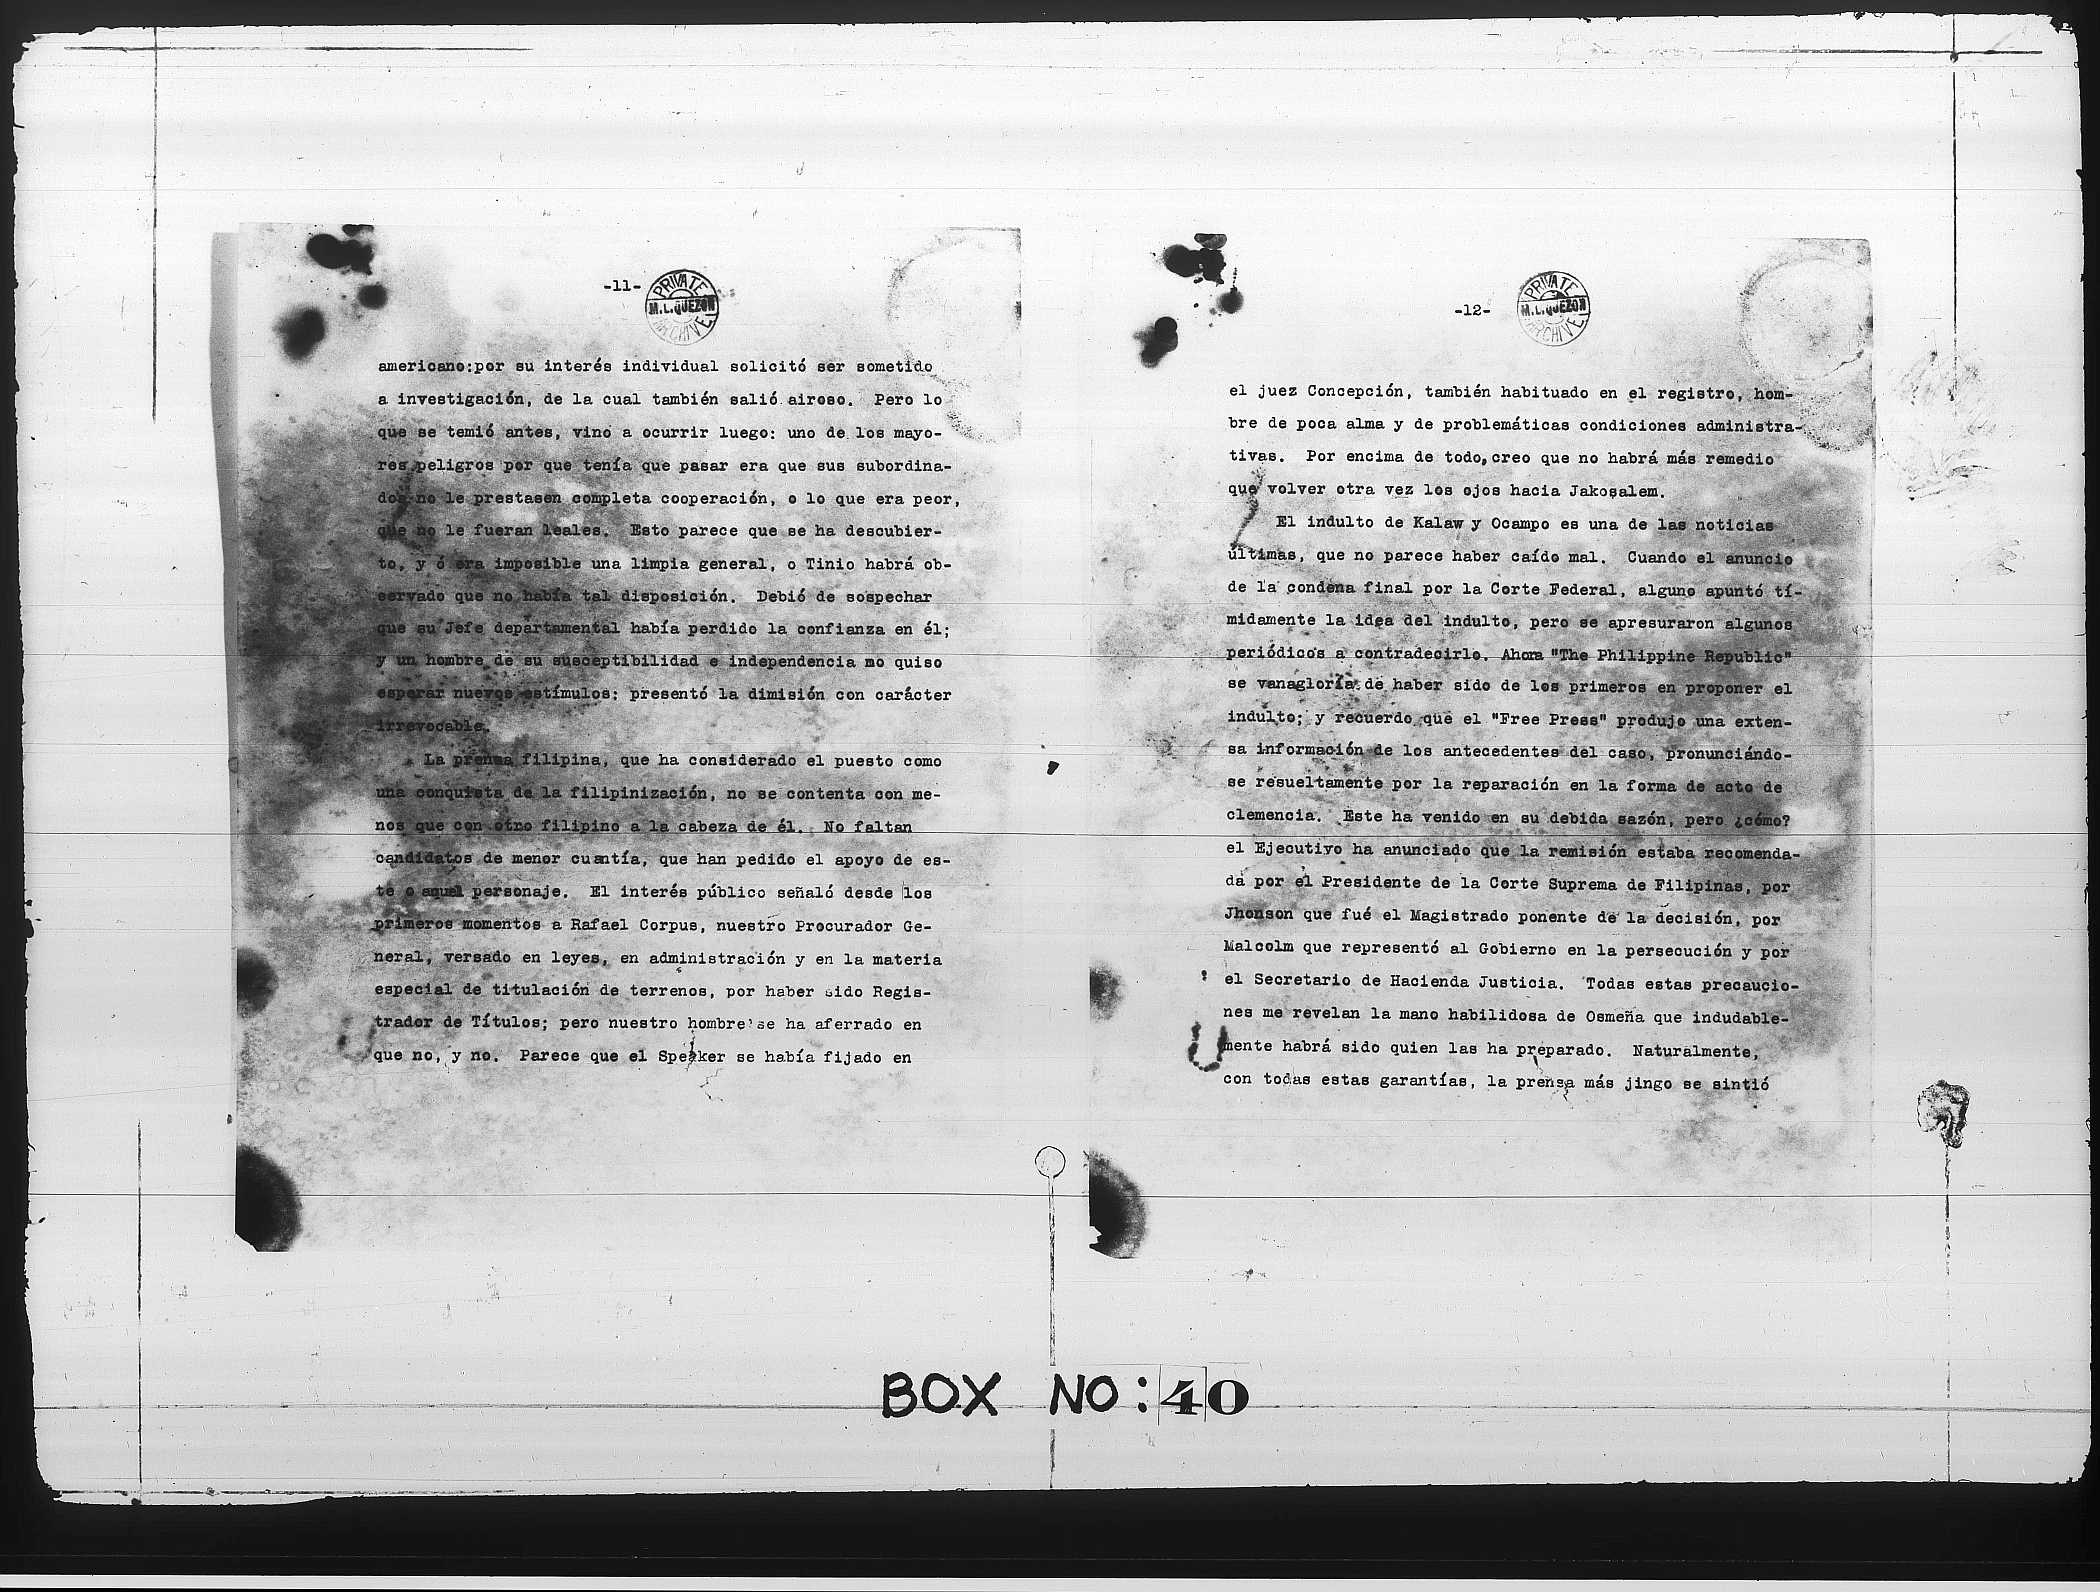 -11-
PRIVATE
M.L.QUEZON
ARCHIVE
americano:por su interés individual solicitó ser sometido
a investigación, de la cual también salió airoso. Pero lo
que se temió antes, vino a ocurrir luego: uno de los mayo-
res peligros por que tenía que pasar era que sus subordina-
dos no le prestasen completa cooperación, o lo que era peor,
que no le fueran leales. Esto parece que se ha descubier-
to, y ó era imposible una limpia general, o Tinio habrá ob-
servado que no había tal disposición. Debió de sospechar
que su Jefe departamental había perdido la confianza en él;
y un hombre de su susceptibilidad e independencia no quiso
esperar nuevos estímulos: presentó la dimisión con carácter
irrevocable.
La prensa filipina, que ha considerado el puesto como
una conquista de la filipinización, no se contenta con me-
nos que con otro filipino a la cabeza de él. No faltan
candidatos de menor cuantía, que han pedido el apoyo de es-
te o aquel personaje. El interés público señaló desde los
primeros momentos a Rafael Corpus, nuestro Procurador Ge-
neral, versado en leyes, en administración y en la materia
especial de titulación de terrenos, por haber sido Regis-
trador de Títulos; pero nuestro hombre se ha aferrado en
que no, y no. Parece que el Speaker se había fijado en
-12-
PRIVATE
M.L.QUEZON
ARCHIVE
el juez Concepción, también habituado en el registro, hom-
bre de poca alma y de problemáticas condiciones administra-
tivas. Por encima de todo,creo que no habrá más remedio
que volver otra vez los ojos hacia Jakosalem.
El indulto de Kalaw y Ocampo es una de las noticias
últimas, que no parece haber caído mal. Cuando el anuncio
de la condena final por la Corte Federal, alguno apuntó tí-
midamente la idea del indulto, pero se apresuraron algunos
periódicos a contradecirlo. Ahora "The Philippine Republic"
se vanagloría de haber sido de los primeros en proponer el
indulto; y recuerdo que el "Free Press" produjo una exten-
sa información de los antecedentes del caso, pronunciándo-
se resueltamente por la reparación en la forma de acto de
clemencia. Este ha venido en su debida sazón, pero ¿cómo?
el Ejecutivo ha anunciado que la remisión estaba recomenda-
da por el Presidente de la Corte Suprema de Filipinas, por
Jhonson que fué el Magistrado ponente de la decisión, por
Malcolm que representó al Gobierno en la persecución y por
el Secretario de Hacienda Justicia. Todas estas precaucio-
nes me revelan la mano habilidosa de Osmeña que indudable-
mente habrá sido quien las ha preparado. Naturalmente,
con todas estas garantías, la prensa más jingo se sintió
BOX NO: 40